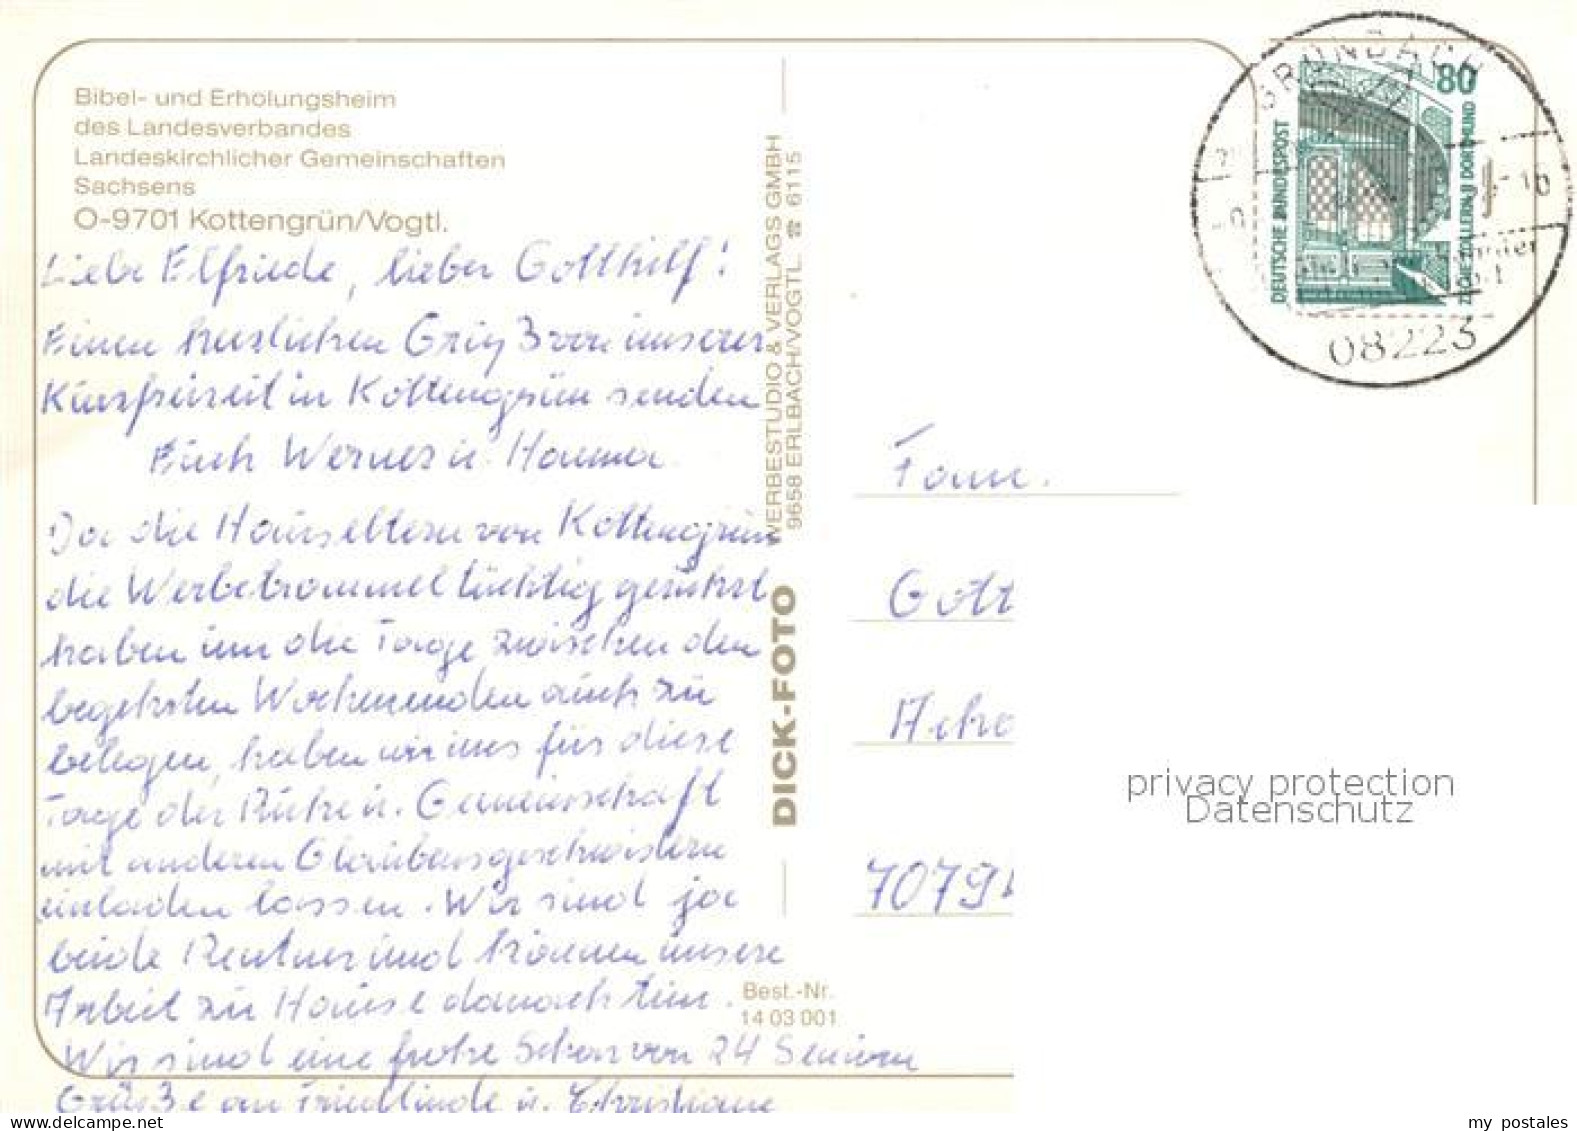 Bibel- und Erholungsheim
des Landesverbandes
Landeskirchlicher Gemeinschaften
Sachsens
O-9701 Kottengrün/Vogtl.
Liebe Elfriede, lieber Gotthilf!
Einen herzlichen Gruß von unserer
Kurzfreizeit in Kottengrün senden
Euch Werner u. Hanna
Da die Hauseltern von Kottengrün
die Werbetrommel tüchtig gerührt
haben um die Tage zwischen den
begehrten Wochenenden auch zu
belegen, haben wir uns für diese
Tage der Ruhe u. Gemeinschaft
mit anderen Glaubensgeschwistern
einladen lassen. Wir sind ja
beide Rentner und können unsere
Arbeit zu Hause danach tun.
Wir sind eine frohe Schar von 24 Senioren
Grüße an Friedlinde u. Christiane
WERBESTUDIO & VERLAGS GMBH
9658 ERLBACH/VOGTL. ☎ 6115
DICK-FOTO
Best.-Nr.
14 03 001
GRÜNBACH
08223
80
DEUTSCHE BUNDESPOST
ZECHE ZOLLERN II DORTMUND
Fam.
Gott
7079
privacy protection
Datenschutz
my postales